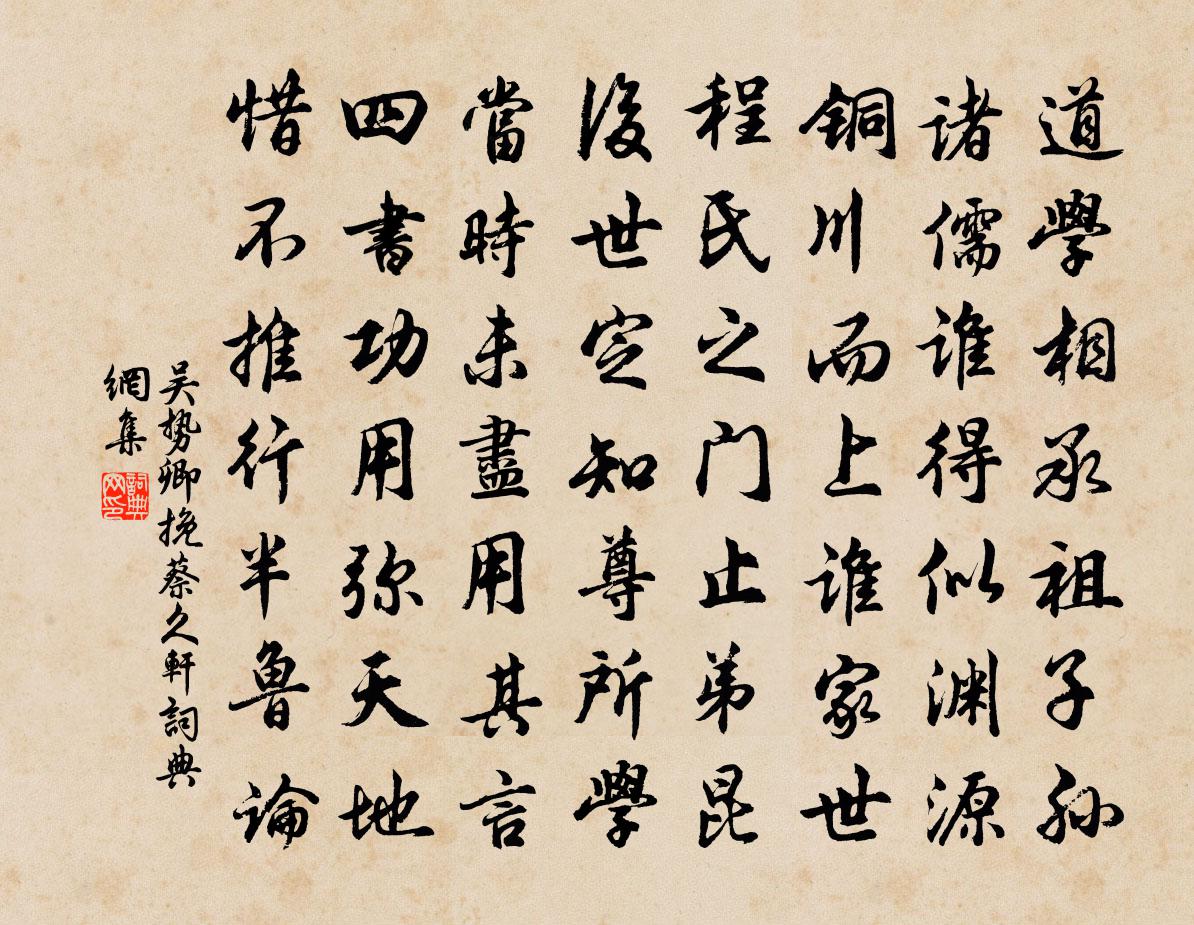 道學相承祖子孫
諸儒誰得似渊源
銅川而上誰家世
程氏之门止弟昆
後世定知尊所學
當時未盡用其言
四書功用弥天地
惜不推行半魯論
吴势卿挽蔡久軒詞典
網集
詞典
网印